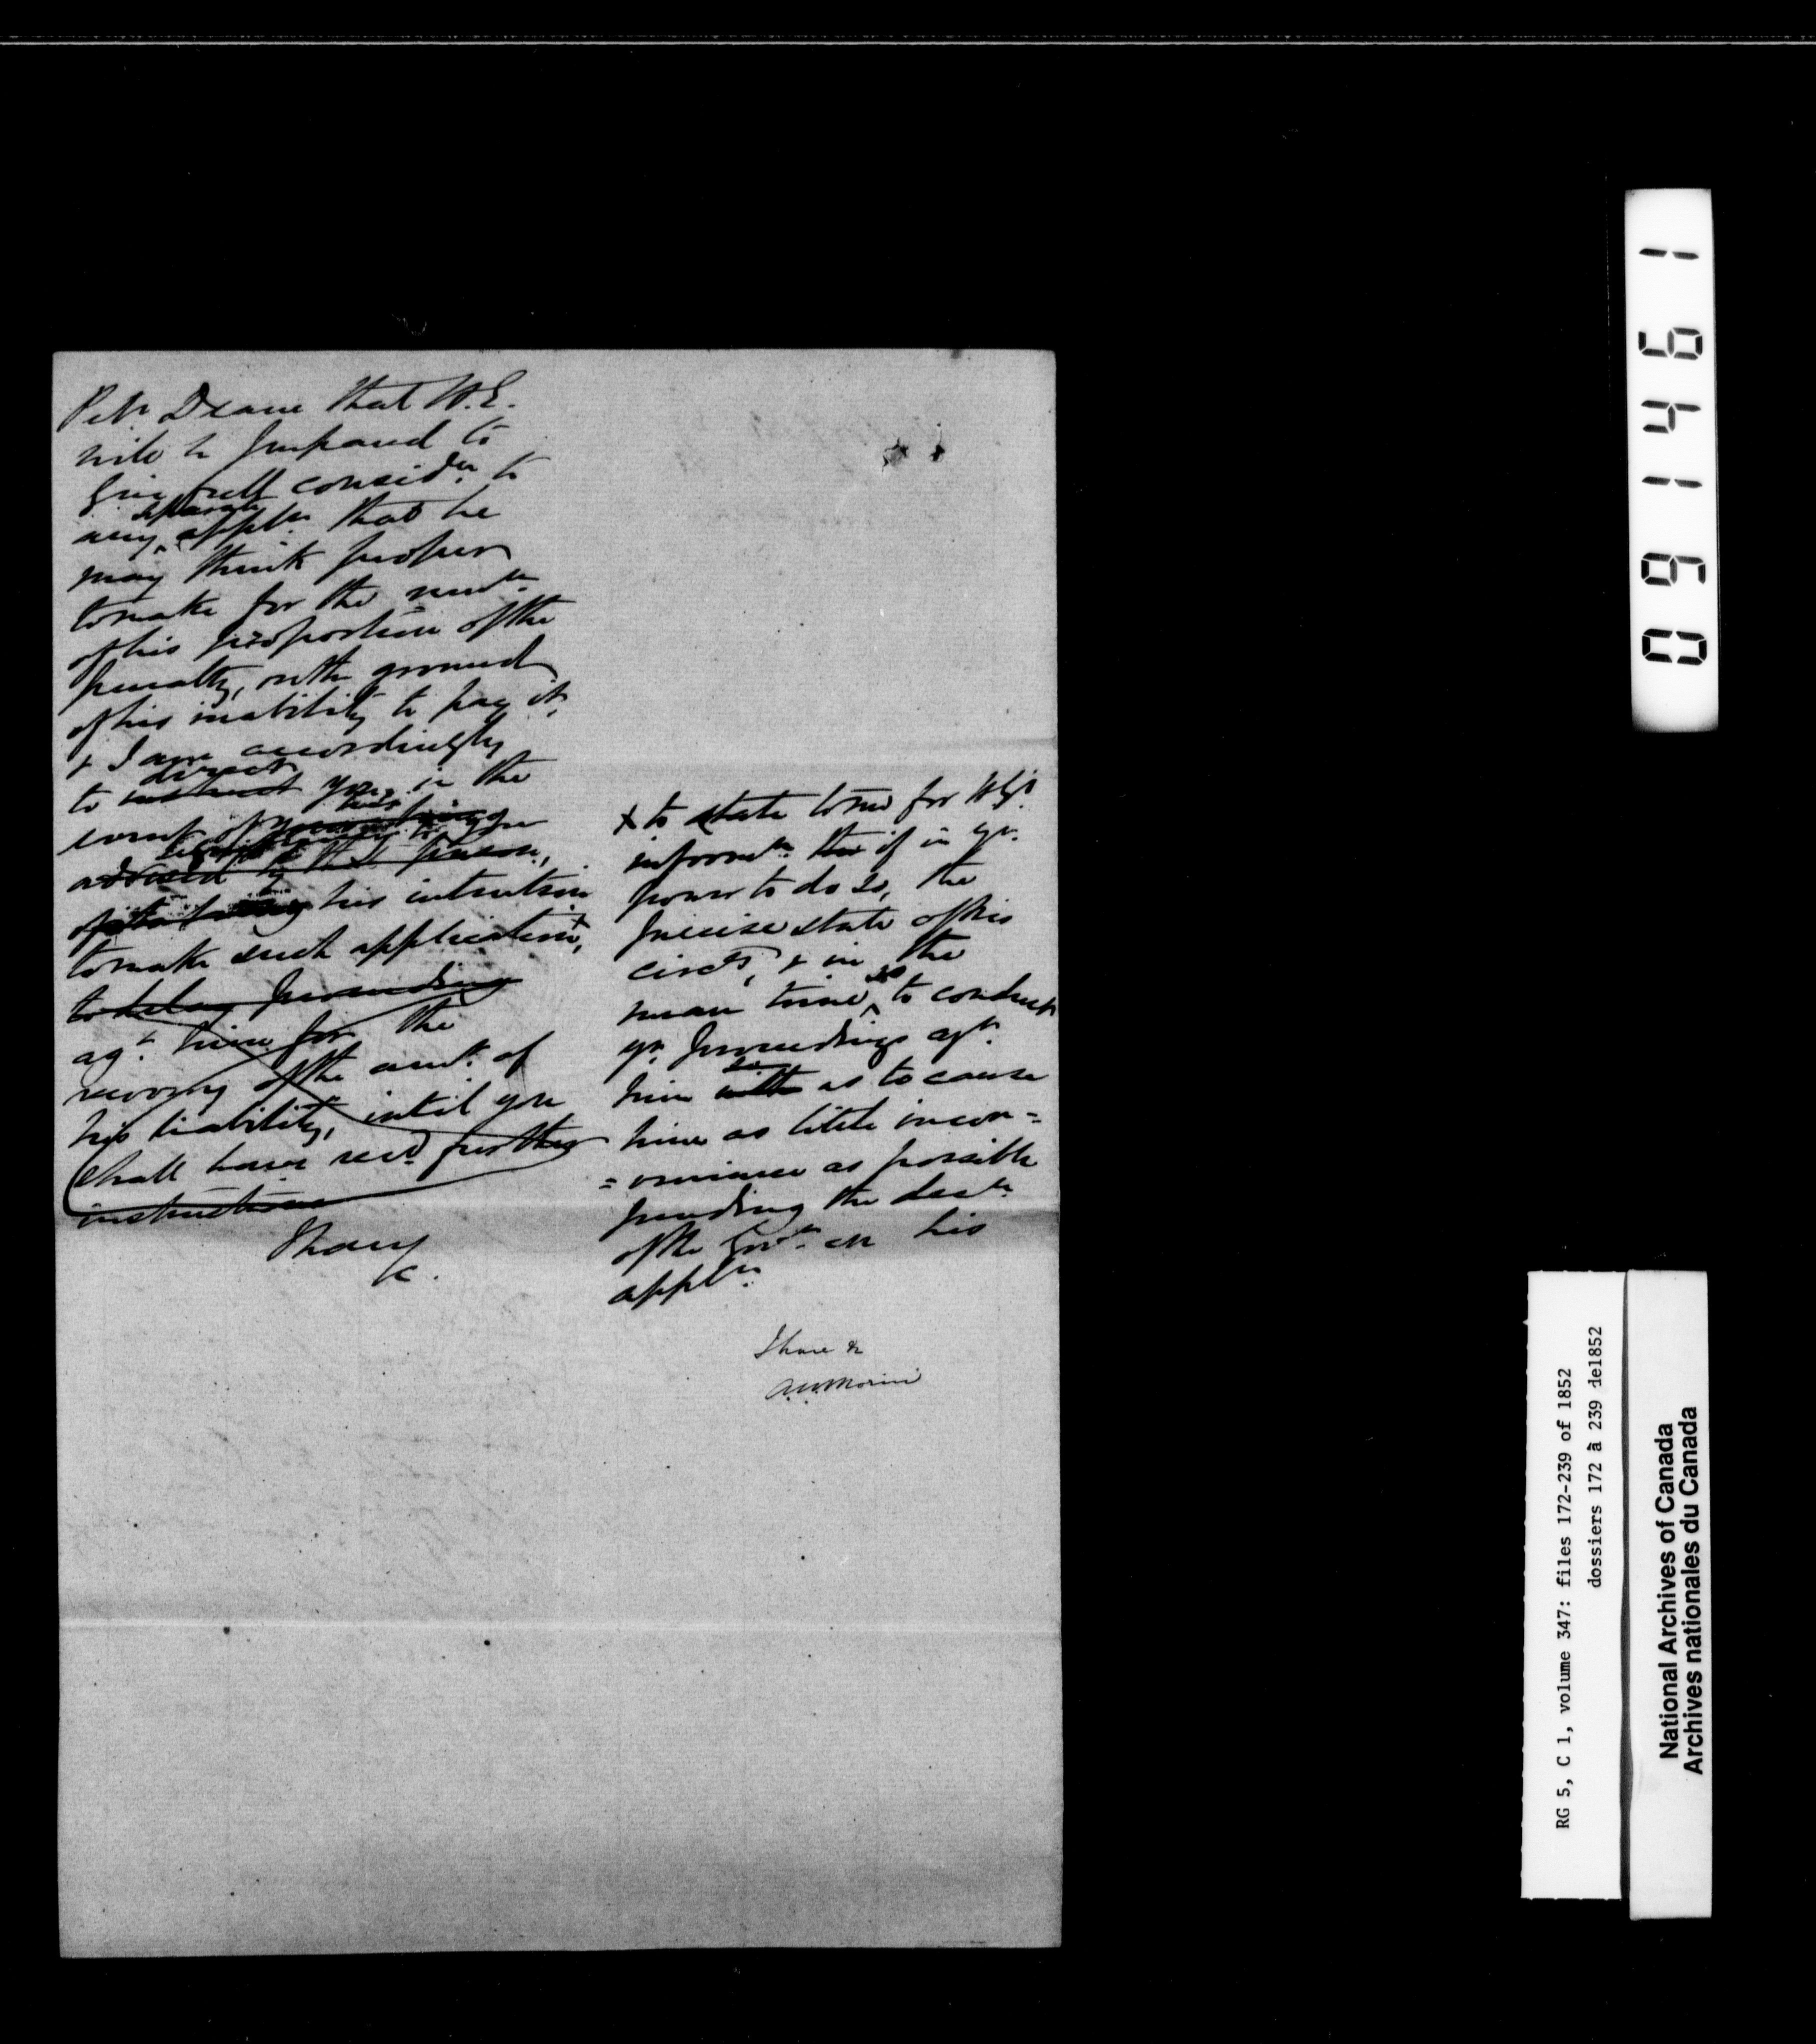 Petr. Deane that H.E.
will be prepared to
give full considn. to
any separate appln. that he
may think proper
to make for the remn.
of his proportion of the
penalty, on the ground
of his inability to pay it,
& I am accordingly
to instruct direct you, in the
event of his
signifying to you
his intention
to make such application, x
to delay proceeding
agt. him for the
recovery of the amt. of
his liability, until you
shall have recd. further
instructions
I have
&c.
x to state to me for H.E's
informn. the if in yr.
power to do so, the
precise state of his
circs, & in the
mean time so to conduct
yr. proceedings agt.
him with so as to cause
him as little incon=
=venience as possible
pending the decn.
of the Govt. on his
appln.
I have &
A.N. Morin
091461
RG 5, C 1, volume 347: files 172-239 of 1852
dossiers 172 à 239 de1852
National Archives of Canada
Archives nationales du Canada